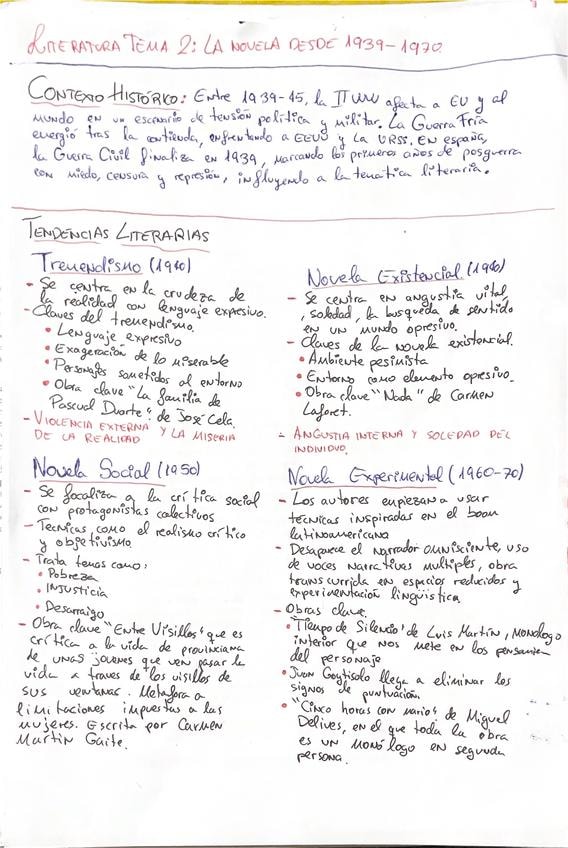 LITERATURA TEMA 2: LA NOVELA DESDE 1939-1970
CONTEXTO HISTÓRICO: Entre 1939-45, la II WW afecta a EU y al
mundo en un escenario de tensión política y militar. La Guerra Fría
energió tras la contienda, enfrentando a EEUU y La URSS. EN españa,
la Guerra Civil finaliza en 1939, marcando los primeros años de posguerra
con miedo, censura y represión, influyendo a la temática literaria.
TENDENCIAS LITERARIAS
Tremendismo (1940)
- Se centra en la crudeza de
la realidad con lenguaje expresivo.
- Claves del tremendismo.
• Lenguaje expresivo
• Exageración de lo miserable
• Personajes sometidos al entorno
• Obra clave "La familia de
Pascual Duarte" de José Cela.
- VIOLENCIA EXTERNA Y LA MISERIA
DE LA REALIDAD
Novela Existencial (1940)
- Se centra en angustia vital
, soledad, la busqueda de sentido
en un mundo opresivo.
- Claves de la novela existencial.
• Ambiente pesimista
• Entorno como elemento opresivo.
• Obra clave "Nada" de Carmen
Laforet.
- ANGUSTIA INTERNA Y SOLEDAD DEL
INDIVIDUO.
Novela Social (1950)
- Se focaliza a la crítica social
con protagonistas colectivos
- Tecnicas como el realismo crítico
y objetivismo.
- Trata temas como:
• Pobreza
• INJUSTICIA
• Desarraigo
- Obra clave "Entre Visillos" que es
crítica a la vida de provinciana
de unas jovenes que ven pasar la
vida a traves de los visillos de
sus ventanas. Metafora a
limitaciones impuestas a las
mujeres. Escrita por Carmen
Martin Gaite.
Novela Experimental (1960-70)
- Los autores empiezan a usar
tecnicas inspiradas en el boom
latinoamericano
- Desaparece el narrador omnisciente, uso
de voces narrativas multiples, obra
transcurrida en espacios reducidos y
experimentación lingüistica.
- Obras clave.
• "Tiempo de Silencio" de Luis Martin, MONOlogo
interior que nos mete en los
del personaje
• Juan Goytisolo llega a eliminar los
signos de puntuación.
• "Cinco horas con mario" de Miguel
Delives, en el que toda la obra
es un monólogo en segunda
persona.